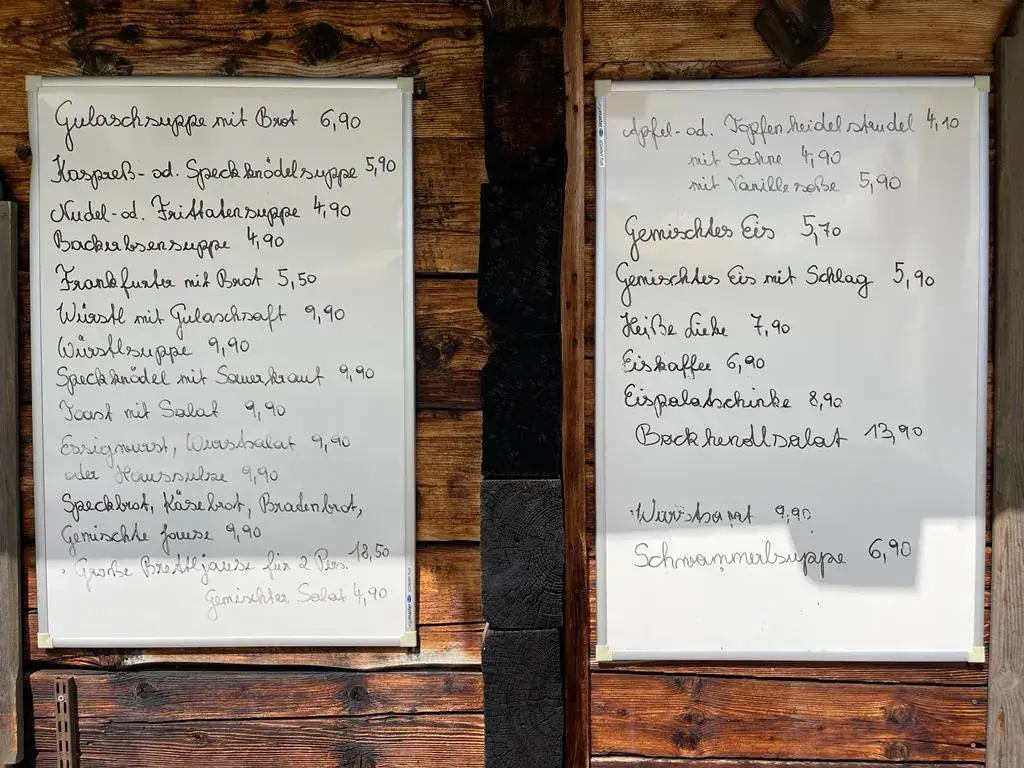 Gulaschsuppe mit Brot 6,90
Kaspreß- od. Speckknödelsuppe 5,90
Nudel-od. Frittatensuppe 4,90
Backerbsensuppe 4,90
Frankfurter mit Brot 5,50
Würstl mit Gulaschsaft 9,90
Würstlsuppe 9,90
Speckknödel mit Sauerkraut 9,90
Toast mit Salat 9,90
Essigwurst, Wurstsalat 9,90
oder Haussulze 9,90
Speckbrot, Käsebrot, Bradenbrot,
Gemischte Jause 9,90
Große Brettljause für 2 Pers. 18,50
Gemischter Salat 4,90
Apfel- od. Topfenheidelstrudel 4,10
mit Sahne 4,90
mit Vanillesoße 5,90
Gemischtes Eis 5,70
Gemischtes Eis mit Schlag 5,90
Heiße Liebe 7,90
Eiskaffee 6,90
Eispalatschinke 8,90
Backhendlsalat 13,90
9,90
Schwammerlsuppe 6,90